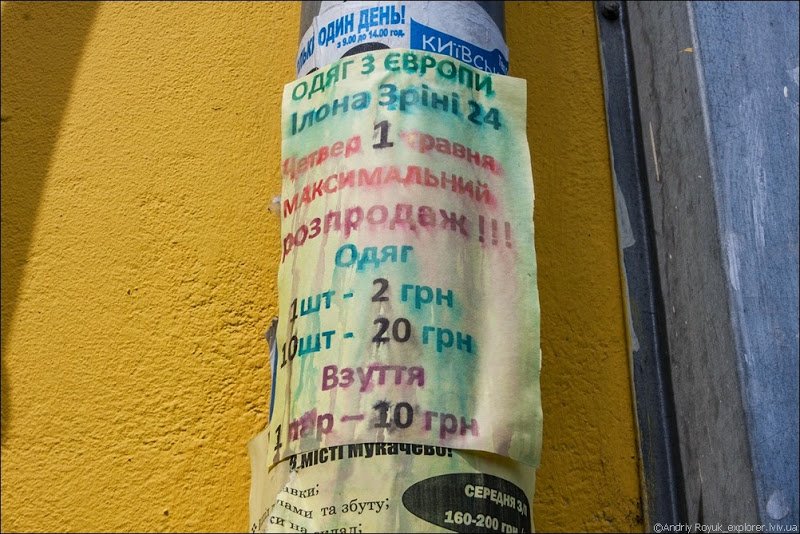 ОДИН ДЕНЬ!
з 9.00 до 14.00 год.
КИЇВСЬ
ОДЯГ З ЄВРОПИ
Ілона Зріні 24
Четвер 1 травня
МАКСИМАЛЬНИЙ
розпродаж !!!
Одяг
1шт - 2 грн
10шт - 20 грн
Взуття
1 пар – 10 грн
В місті Мукачево!
авки;
ами та збуту;
СЕРЕДНЯ З/П
160-200 грн
©Andriy Royuk_explorer.lviv.ua